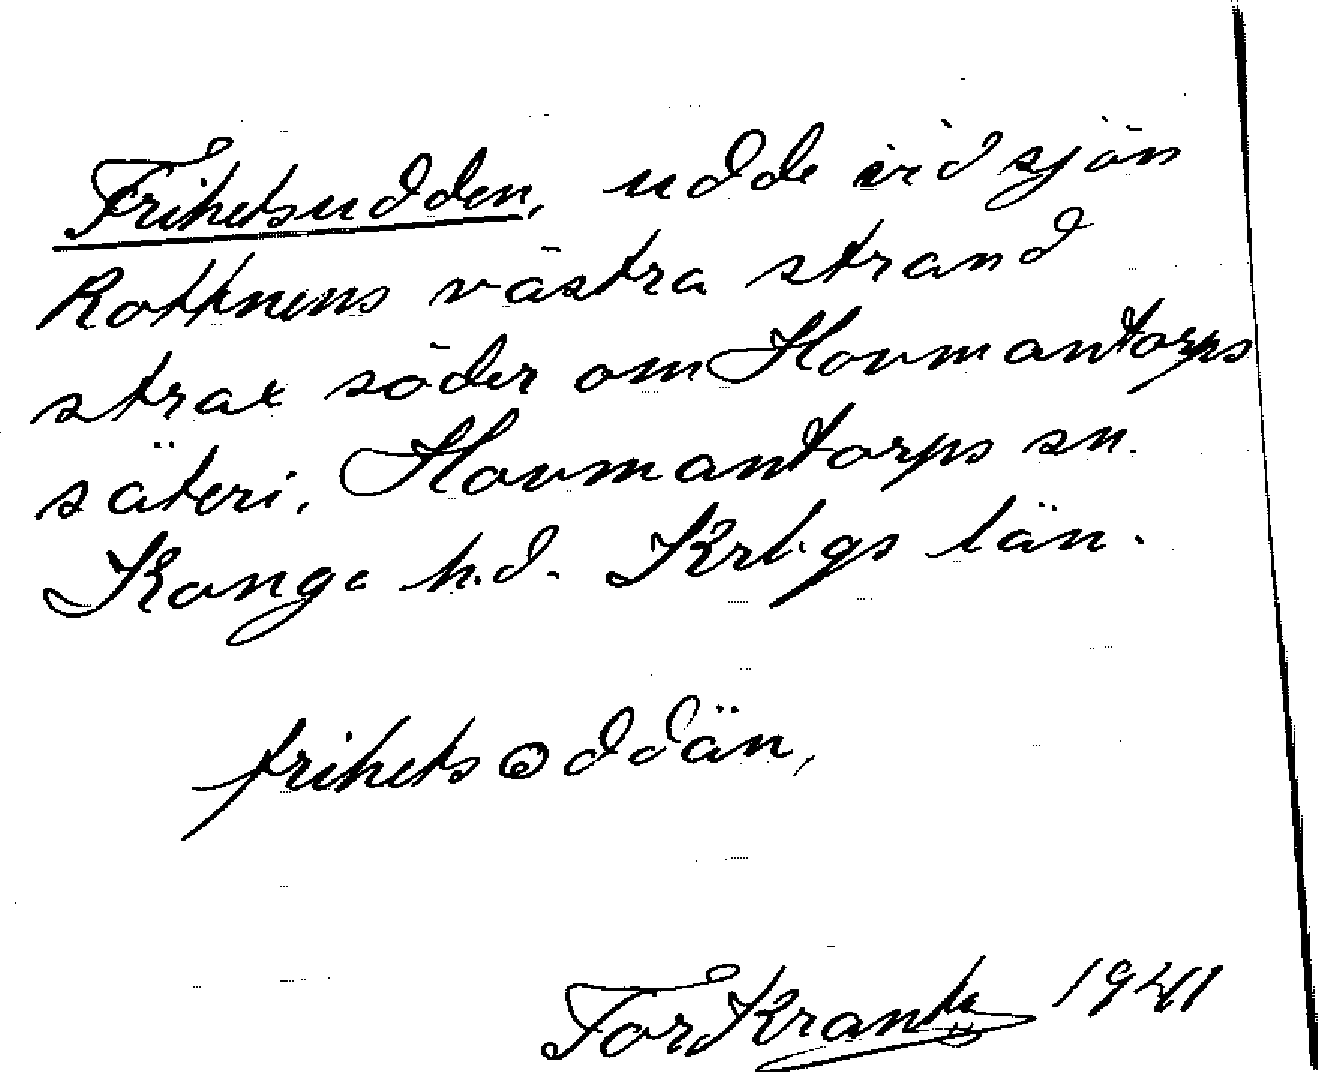 Frihetsudden, udde vid sjön
Rottnens västra strand
strax söder om Hovmantorps
säteri. Hovmantorps sn.
Konga h.d. Krbgs län.
frihetsoddän,
Tor Krantz 1941